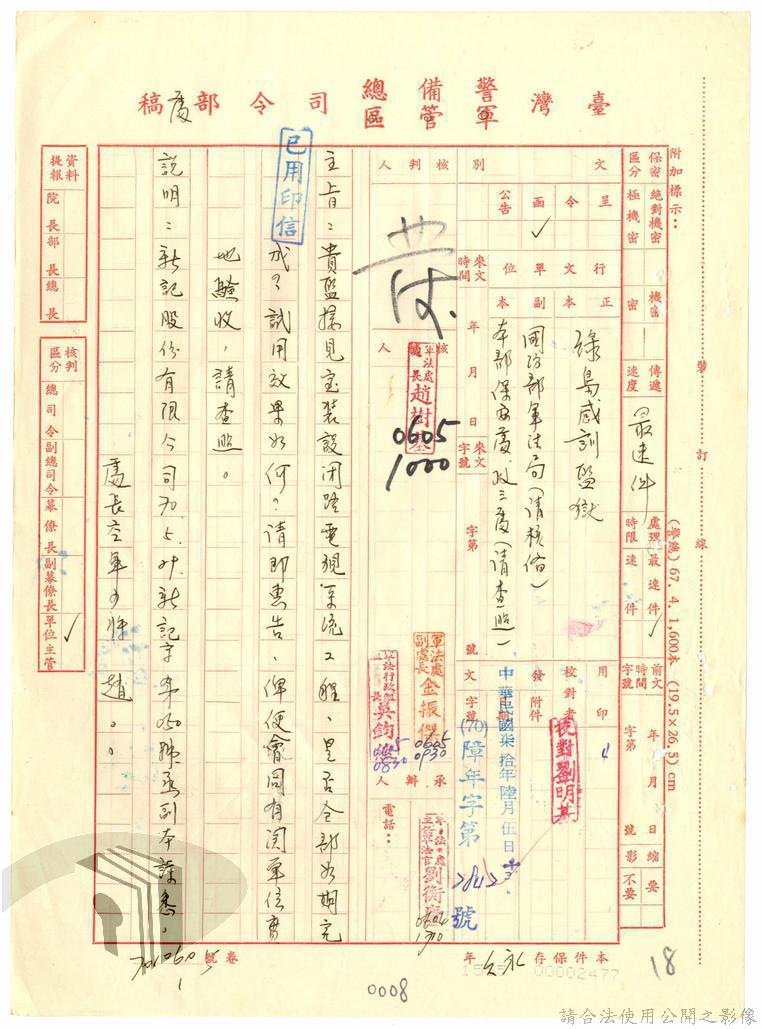 附加標示：
裝訂線
(警總) 67. 4. 1,600本 (19.5×26.5) cm
臺灣警備總司令部處稿
軍管區
保密區分
絕對機密
極機密
機密
密
傳遞速度
最速件
處理時限
最速件
✓
速件
前文時間字號
年月日
字第號
縮影
要
不要
文別
呈
令
函
✓
公告
行文單位
正本
綠島感訓監獄
副本
國防部軍法局（請核備）
本部保安處、政三處（請查照）
來文時間
年月日
來文字號
字第號
用印
校對者
校對劉明
發文
附件
日期
中華民國柒拾年陸月伍日
(70)障年字第
號
核判人
核人
軍法處處長趙樹基
0605
1000
軍法處副處長金振傑
0605
0930
吳鈞
0605
0830
承辦人
劉衡
電話：
主旨：貴監接見室裝設閉路電視系統工程、是否全部如期完
成？試用效果如何？請即惠告、俾便會同有關單位實
地驗收，請查照。
說明：新記股份有限公司70.5.29.新記字第050號函副本諒悉。
處長空軍少將趙○○
已用印信
資料提報
院長
部長
總長
核判區分
總司令
副總司令
幕僚長
副幕僚長
單位主管
✓
本件保存永久年
00002477
卷號
18
0008
請合法使用公開之影像